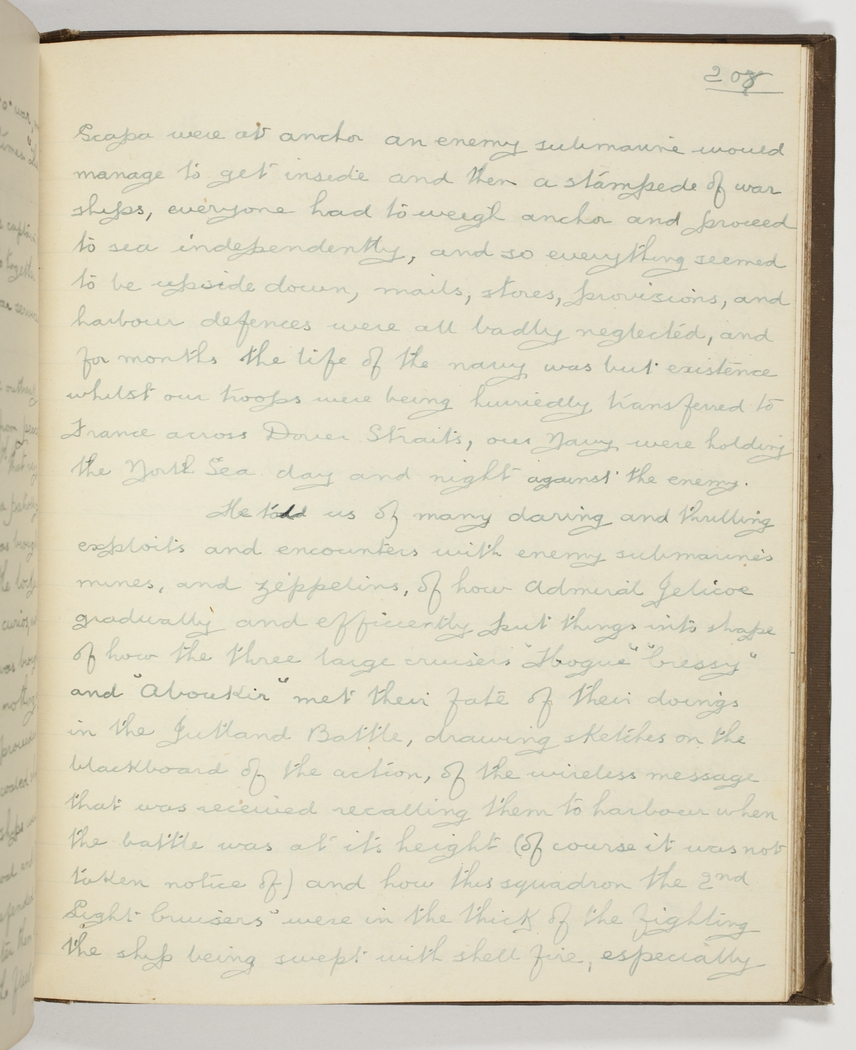 208
Scapa were at anchor an enemy submarine would
manage to get inside and then a stampede of war
ships, everyone had to weigh anchor and proceed
to sea independently, and so everything seemed
to be upside down, mails, stores, provisions, and
harbour defences were all badly neglected, and
for months the life of the navy was but existence
whilst our troops were being hurriedly transferred to
France across Dover Straits, our Navy were holding
the North Sea day and night against the enemy.
He told us of many daring and thrilling
exploits and encounters with enemy submarines
mines, and zeppelins, of how Admiral Jelicoe
gradually and efficiently put things into shape
of how the three large cruisers "Hogue" "Cressy"
and "Aboukir" met their fate of their doings
in the Jutland Battle, drawing sketches on the
blackboard of the action, of the wireless message
that was received recalling them to harbour when
the battle was at its height (of course it was not
taken notice of) and how this squadron the 2nd
Light Cruisers" were in the thick of the fighting
the ship being swept with shell fire, especially